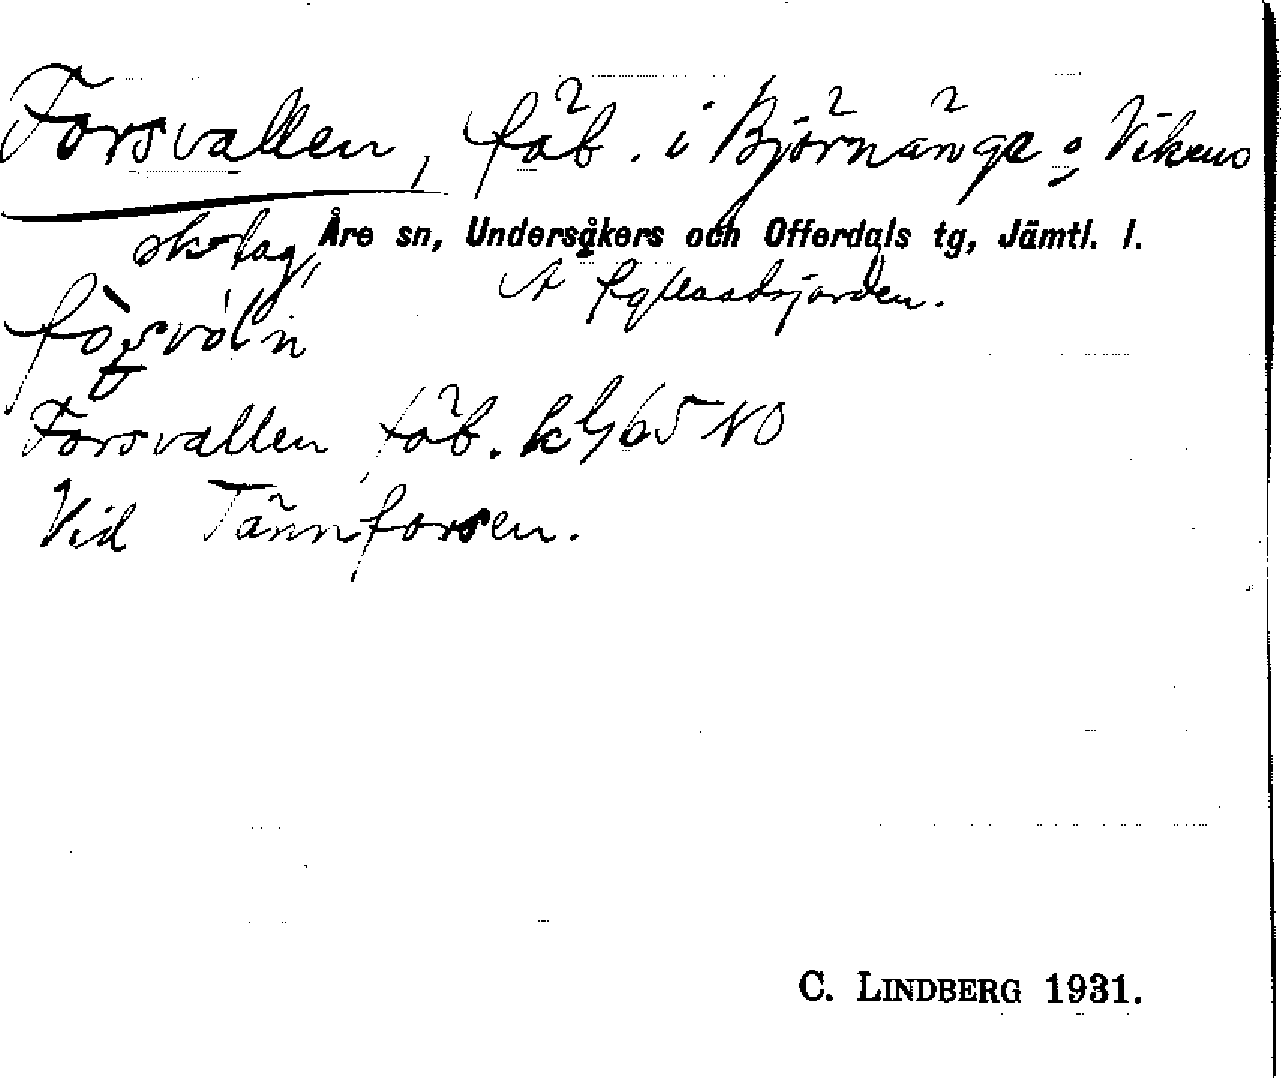 Forsvallen, fäb. i Björnänge o Vikens
skslag, Åre sn, Undersåkers och Offerdals tg, Jämtl. l.
Forsvallen fäb. kbl 65 NO
Vid Tännforsen.
C. LINDBERG 1931.